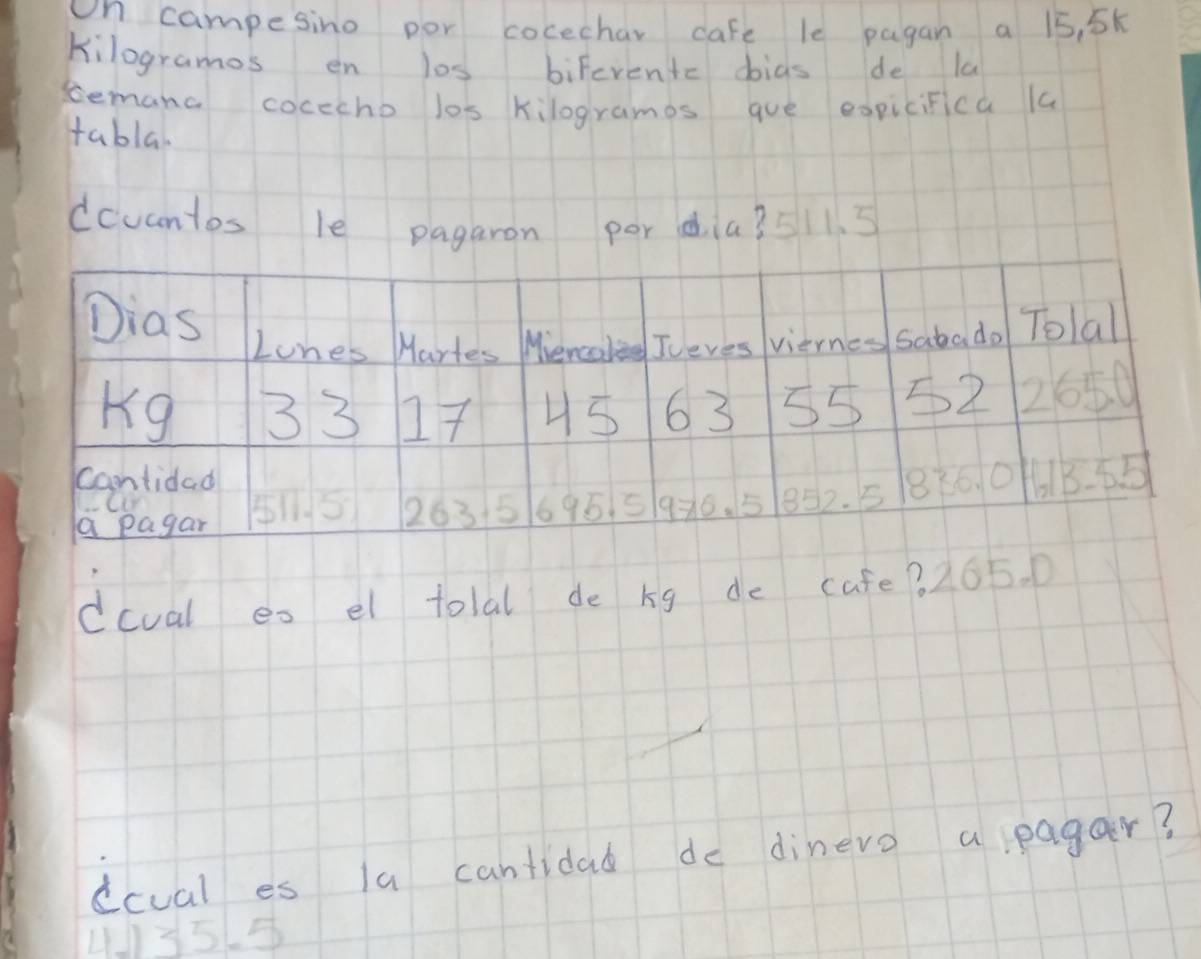 Un campesino por cocechar cafe le pagan a 15,5k
Kilogramos en los biferente dias de la
semana cocecho los Kilogramos que espicifica la
tabla.
¿cuantos le pagaron por dia? 511.5
Dias Lunes Martes Miercoles Jueves viernes Sabado Tolal
Kg 33 17 45 63 55 52 265.0
Cantidad
a pagar 511.5 263.5 695.5 976.5 852.5 836.0
¿cual es el tolal de kg de cafe? 265.0
¿cual es la cantidad de dinero a pagar?
4.135.5